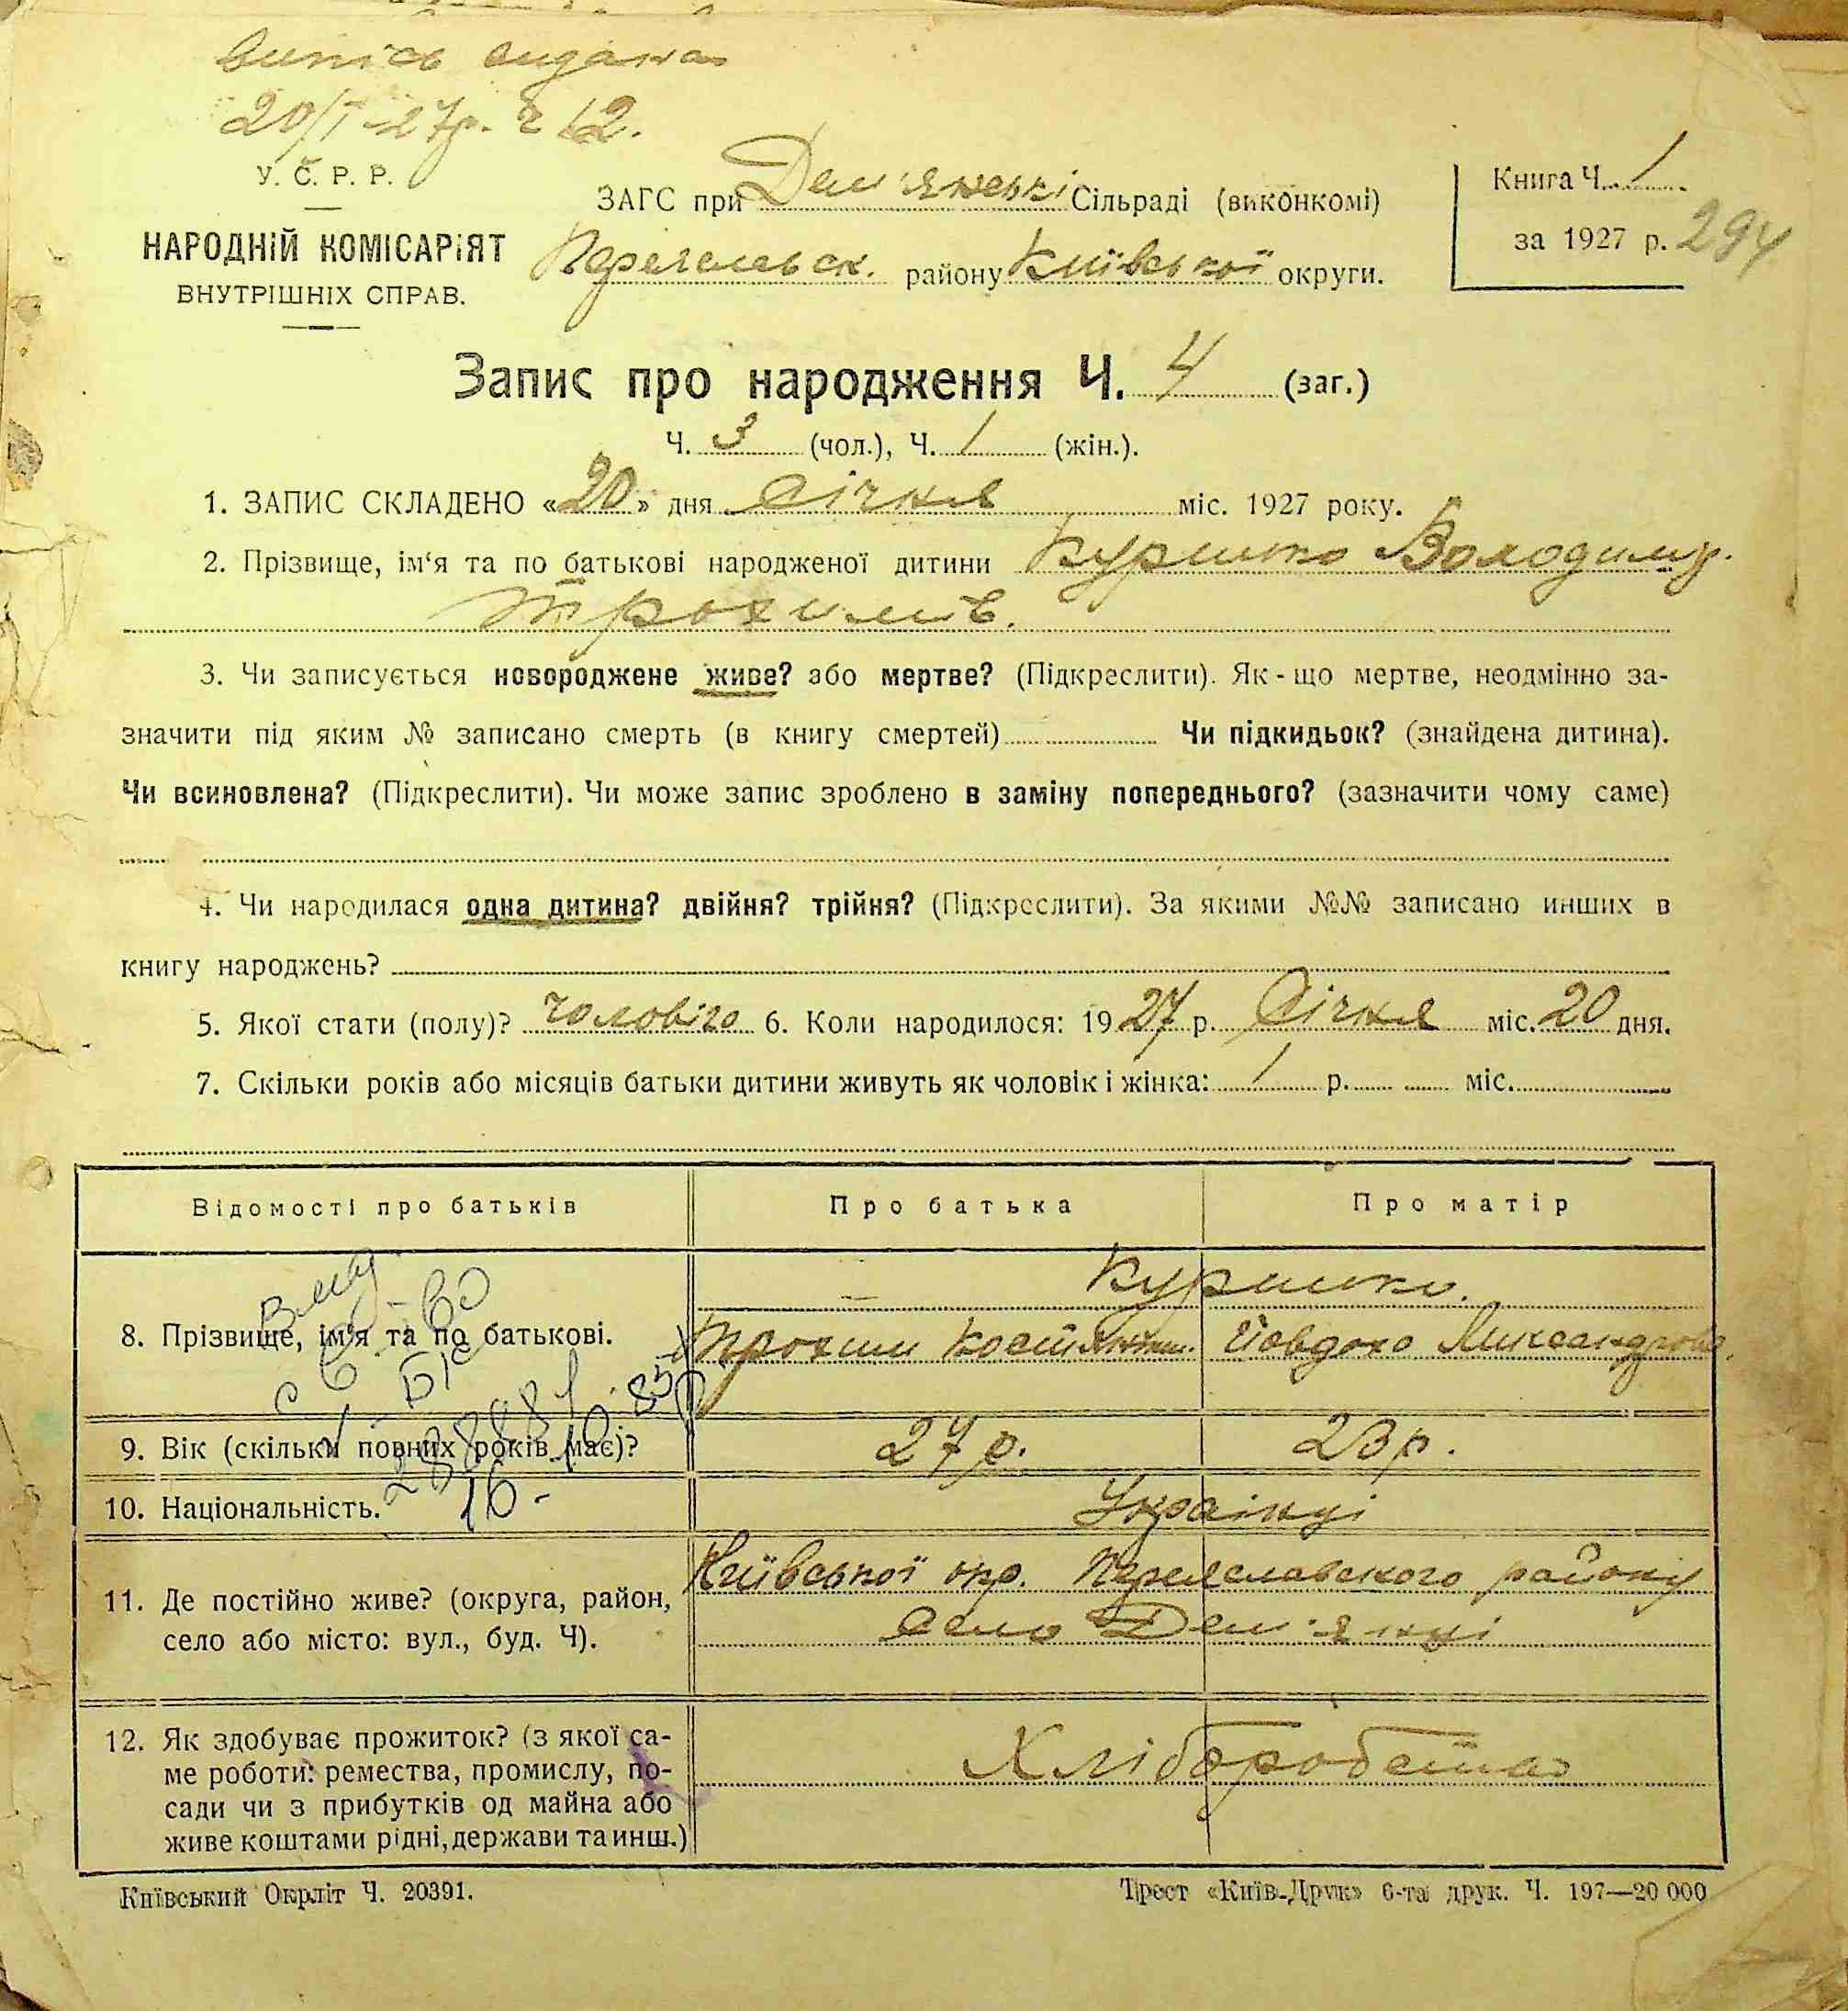 випісь видана
20/I-27р. № 12.
У. С. Р. Р.
НАРОДНІЙ КОМІСАРІЯТ
ВНУТРІШНІХ СПРАВ.
ЗАГС при Дем'янські Сільраді (виконкомі)
Переяславськ. району Київської округи.
Книга Ч. 1
за 1927 р. 294
Запис про народження Ч. 4 (заг.)
Ч. 3 (чол.), Ч. 1 (жін.).
1. ЗАПИС СКЛАДЕНО «20» дня Січня міс. 1927 року.
2. Прізвище, ім‘я та по батькові народженої дитини Куришко Володимир.
Трохимів.
3. Чи записується новороджене живе? або мертве? (Підкреслити). Як-що мертве, неодмінно за-
значити під яким № записано смерть (в книгу смертей) Чи підкидьок? (знайдена дитина).
Чи всиновлена? (Підкреслити). Чи може запис зроблено в заміну попереднього? (зазначити чому саме)
4. Чи народилася одна дитина? двійня? трійня? (Підкреслити). За якими №№ записано инших в
книгу народжень?
5. Якої стати (полу)? чоловічо 6. Коли народилося: 1927 р. Січня міс. 20 дня.
7. Скільки років або місяців батьки дитини живуть як чоловік і жінка: 1 р. міс.
Відомості про батьків Про батька Про матір
Куришко.
8. Прізвище, ім'я та по батькові. Трохим Костянтин. Йовдохо Лиександрова.
9. Вік (скільки повних років має)? 27 р. 23 р.
10. Національність. Українці
16-
11. Де постійно живе? (округа, район,
село або місто: вул., буд. Ч).
Київської окр. Переяславского району
село Дем'янці
12. Як здобуває прожиток? (з якої са-
ме роботи: ремества, промислу, по-
сади чи з прибутків од майна або
живе коштами рідні, держави та инш.)
Хліборобство
Київський Окрліт Ч. 20391.
Трест «Київ-Друк» 6-та друк. Ч. 197—20 000